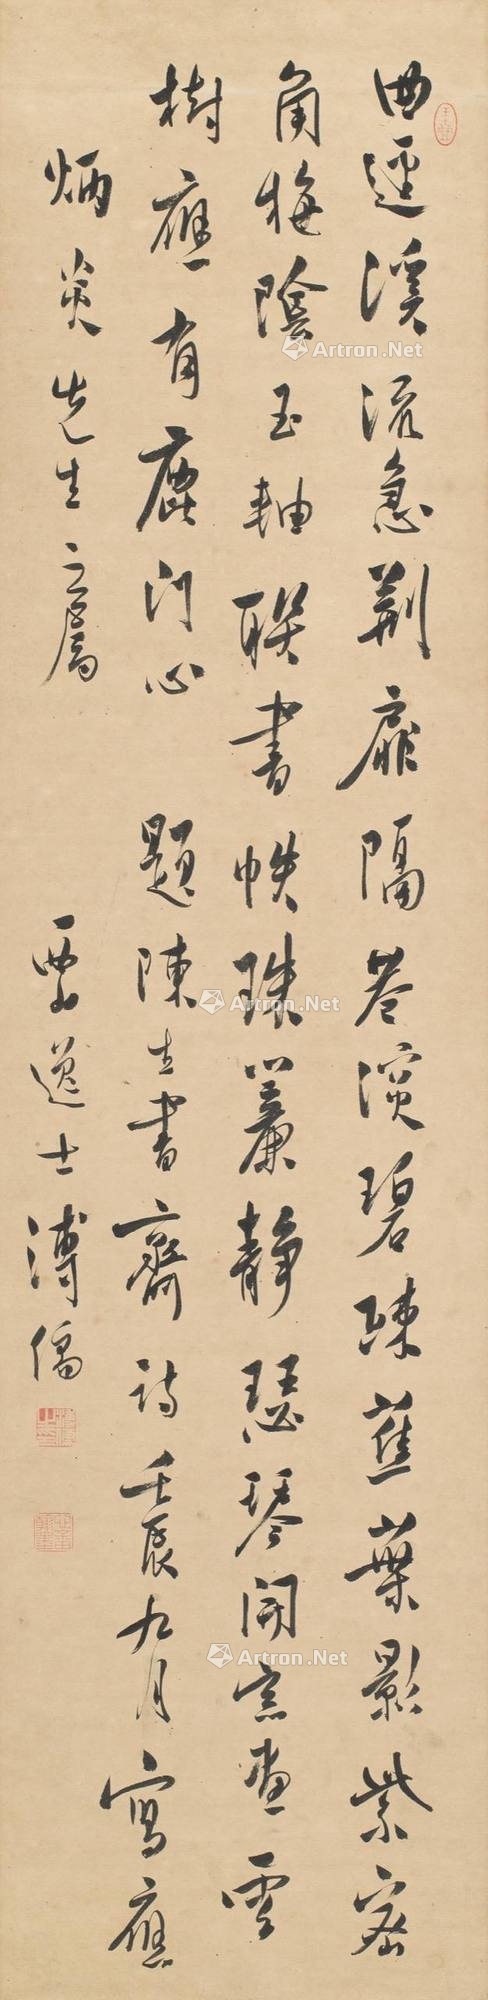 曲逕溪流急荆扉隔巷深碧疎蕉葉影紫密
角梅陰玉軸联書帙珠簾靜瑟琴開窓画雲
樹應有鹿门心　題陳生書齋詩壬辰九月寫應
炳炎先生之屬　西山逸士溥儒
Artron.Net
Artron.Net
Artron.Net
Artron.Net